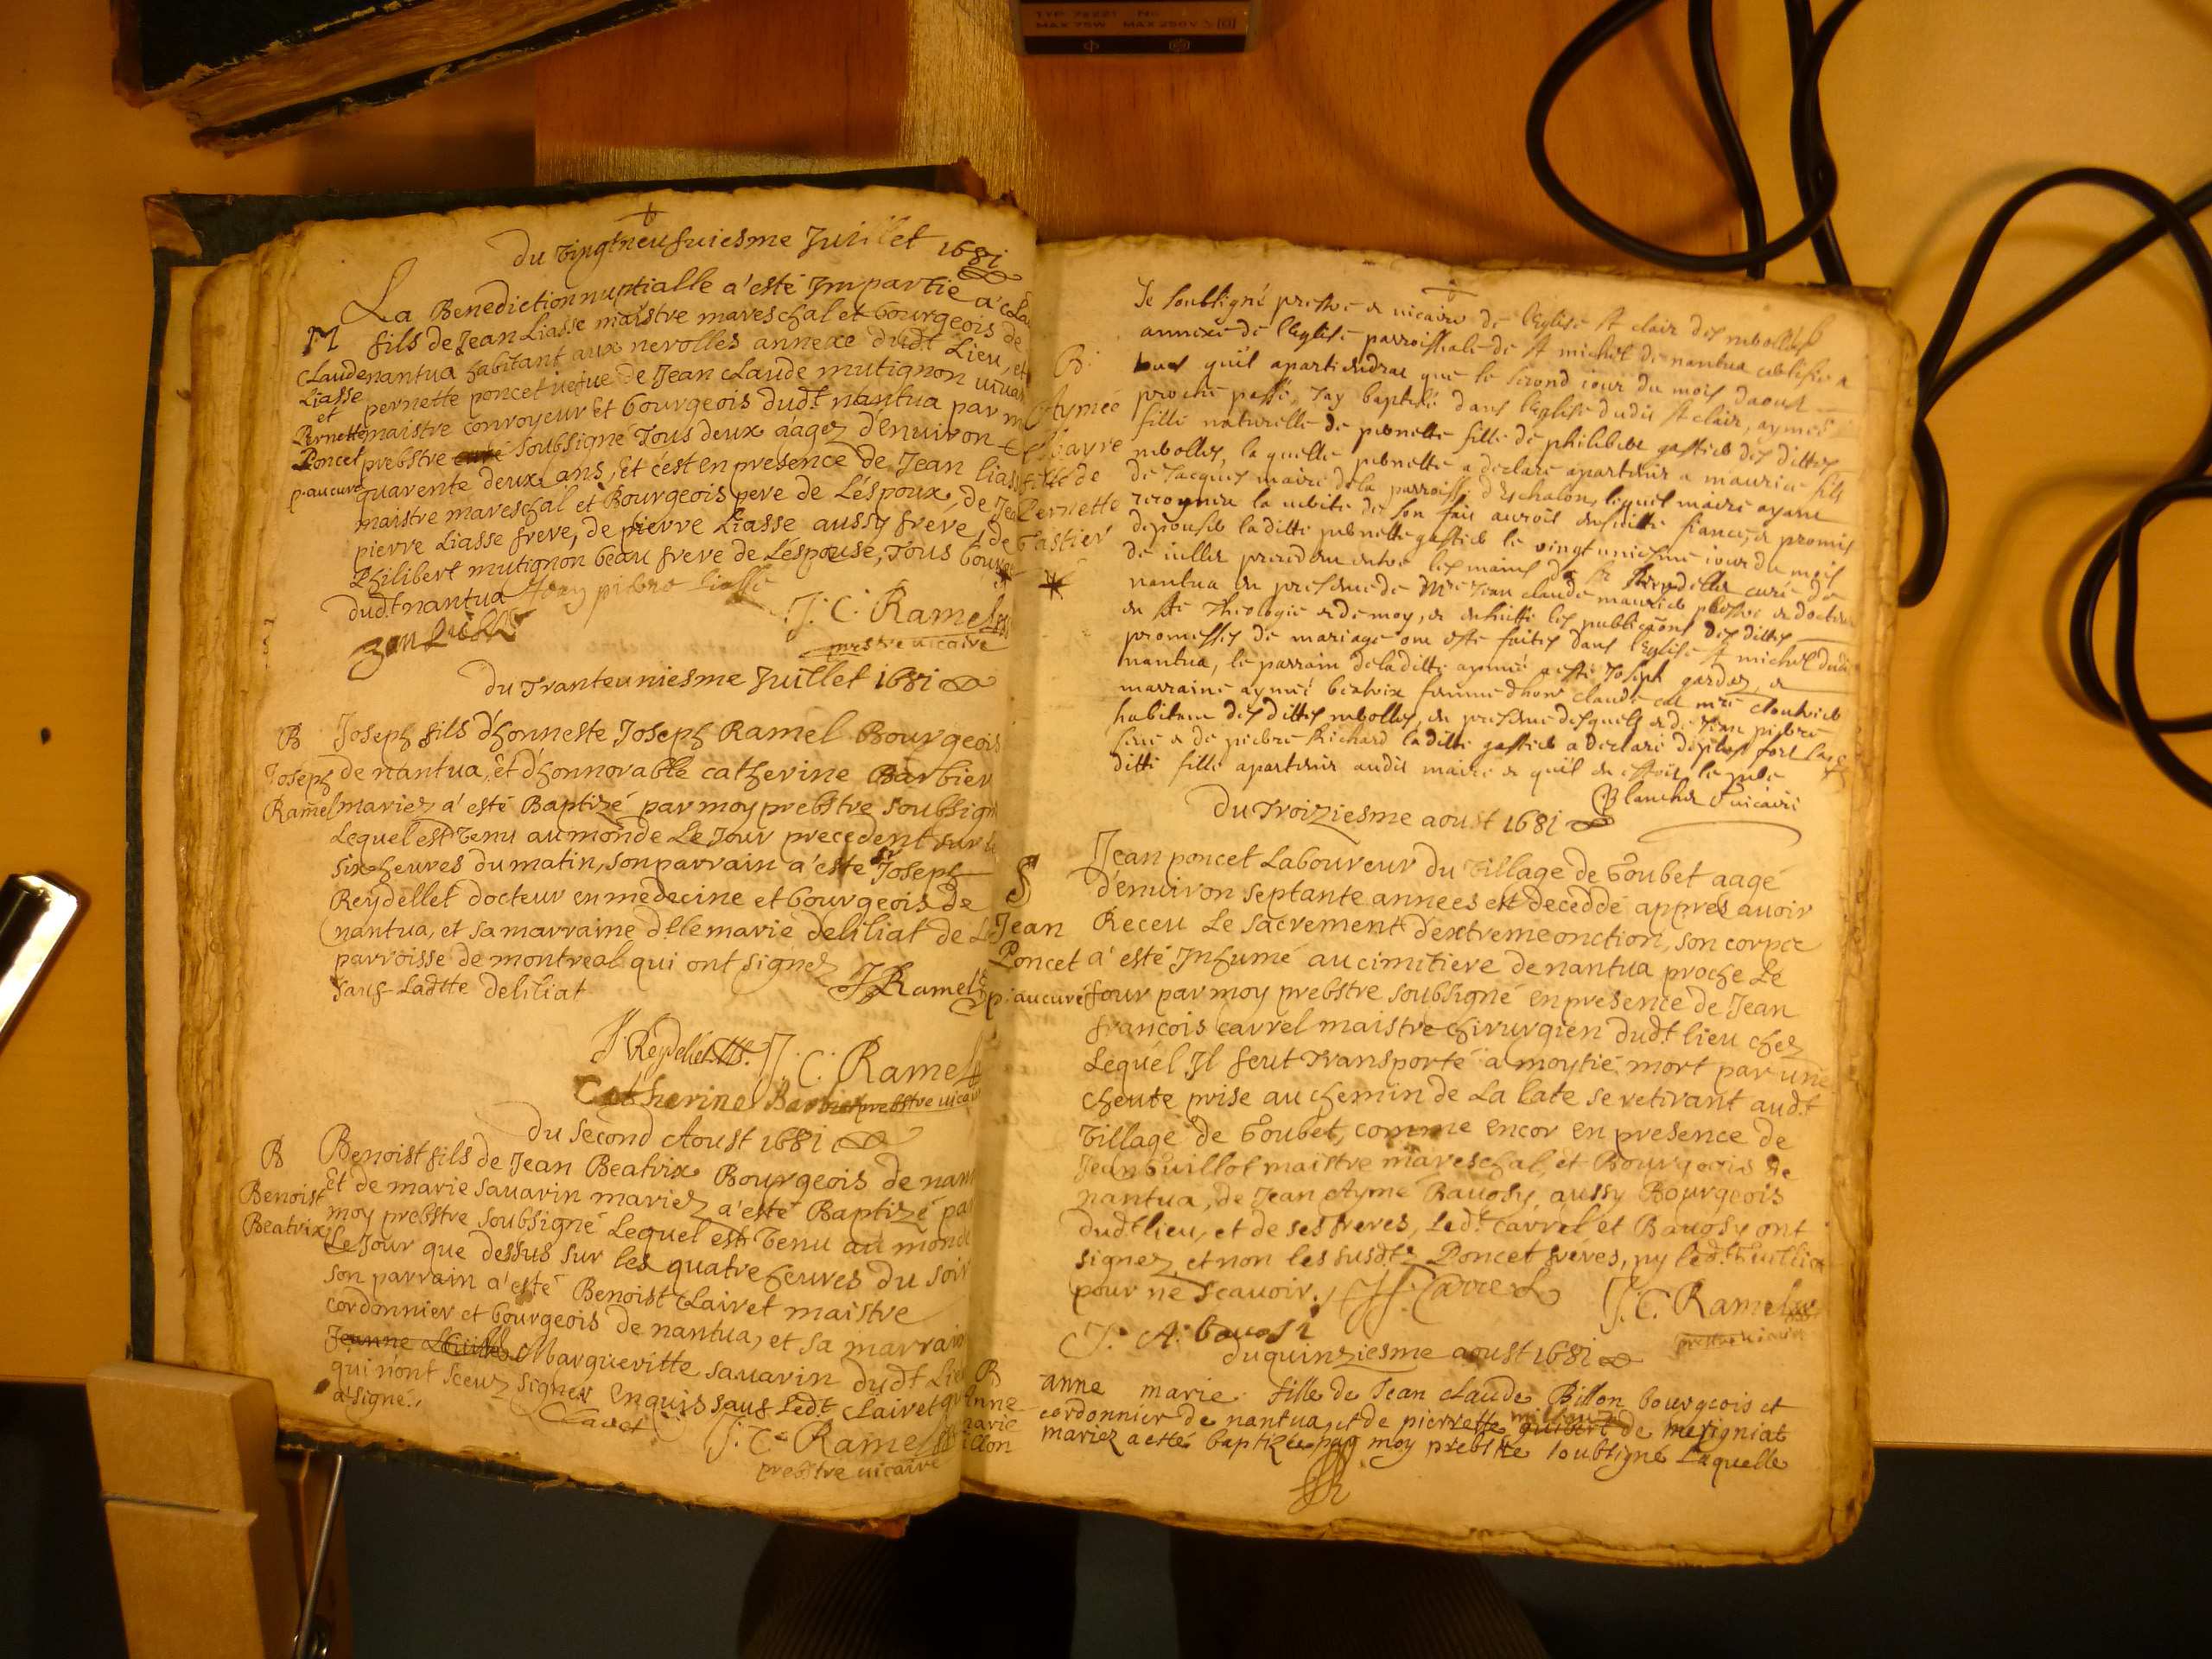 TYP. 72221 No
MAX 75W MAX 250V
du vingtneufuiesme Juillet 1681
La Benediction nuptialle a'esté Impartie a' cLau
M
fils de Jean Liasse maistre mareschal et bourgeois de
nantua habitant aux nerolles annexe dudt Lieu, et
pernette poncet vefue de Jean cLaude mutignon uiuan
maistre conroyeur et bourgeois dudt nantua par m
prebstre curé soubsigné Tous deux aagez d'enuiron
quarente deux ans, et c'est en presence de Jean lias
maistre mareschal et Bourgeois pere de L'éspoux, de Jea
pierre Liasse frere, de pierre Liasse aussy frere, de
Philibert mutignon beau frere de L'éspouse, Tous bourge
dudt nantua
cLaude
Liasse
et
Pernette
Poncet
p. au curé
J. C. Ramel
prestre uicaire
du Tranteuniesme Juillet 1681
B
Joseph
Ramel
Joseph fils d'honneste Joseph Ramel Bourgeois
de nantua, et d'honnorable catherine Barbier
mariez a' esté Baptizé par moy prebstre soubsign
Lequel est venu au monde Le Jour precedent sur l
six heures du matin, son parrain a'esté Sr Joseph
Reydellet docteur en medecine et bourgeois de
nantua, et sa marraine dlle marie deliliat de
parroisse de montreal qui ont signez
sauf Ladtte deliliat
J Ramel
J. Reydellet
J. C. Ramel
Catherine Barbier
prebstre uicaire
du second Aoust 1681
B
Benoist
Beatrix
Benoist fils de Jean Beatrix Bourgeois de nan
et de marie sauarin mariez a'esté Baptizé pa
moy prebstre soubsigné Lequel est venu au mond
Le Jour que dessus sur les quatre heures du soir
son parrain a'esté Benoist Clairet maistre
cordonnier et bourgeois de nantua, et sa marrain
Jeanne Margueritte sauarin dudt Lieu
qui n'ont sceuz signer enquis sauf Ledt Clairet qui
a signé.
Clairet
J. C. Ramel
prebstre uicaire
Je soubsigné prestre & uicaire de l'Eglise St clair des
annexe de l'Eglise parroissiale de St michel de nantua certifie a
tous qu'il apartiendrae que le second iour du mois daoust
prochè passé, Jay baptisé dans l'Eglise dudit St clair, aymeé
fille naturelle de pernette fille de philibert gastier des dittes
nerolles, la quelle pernette a declaré apartenir a maurice fils
de Jacques maire de la parroisse d'Eschalon, lequel maire ayant
B.
Aymee
Pernette
Gastier
nantua en presence de Mre Jean claude
de Ste Theologie & de moy, & ensuitte les publicaons des dittes
promesses de mariage ont esté faites dans l'Eglise St michel dudit
nantua, le parrain de la ditte aymeé a esté Joseph gardez, &
marraine aymeé beatrix femme
habitans des dittes nerolles, en presence desquels & de Jean pierre
& de pierre Richard la ditte gastier a declaré
ditte fille apartenir audit maire & qu'il en estoit le pere
Blanchet uicaire
du Troiziesme aoust 1681
S
Jean
Poncet
p. au curé
Jean poncet Laboureur du village de Goubet aagé
d'enuiron septante annees est decedde appres auoir
Receu Le sacrement d'extremeonction, son corpce
a' esté Inhumé au cimitiere de nantua proche Le
four par moy prebstre soubsigné en presence de Jean
françois carrel maistre chirurgien dudt lieu chez
Lequel Il feut Transporté a moytié mort par une
cheute prise au chemin de La Late se retirant audt
village de Goubet, comme encor en presence de
Jean Guillot maistre mareschal, et Bourgeois de
nantua, de Jean Aymé Bauosy, aussy Bourgeois
dudt lieu, et de ses freres, Ledt Carrel et Bauosy ont
signez, et non les susdtz Poncet freres, ny ledt Guillot
pour ne scauoir.
J f Carrel
J. C. Ramel
J. A. bauosi
prestre uicaire
du quinziesme aoust 1681
B
Anne
marie
Billon
anne marie fille de Jean claude Billon bourgeois et
cordonnier de nantua, et de pierrette guibert de merigniat
mariez a esté baptizée par moy prebstre soubsigné Laquelle